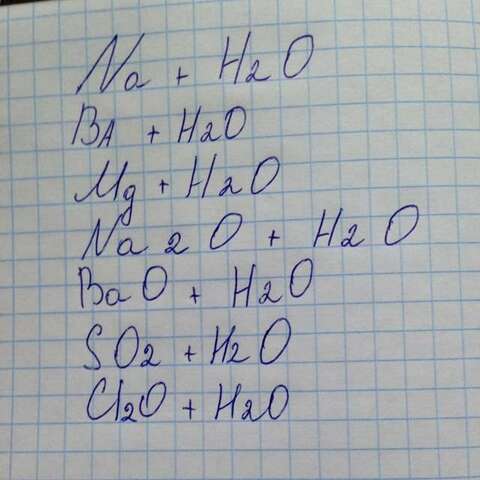 Na + H2O
BA + H2O
Mg + H2O
Na2O + H2O
BaO + H2O
SO2 + H2O
Cl2O + H2O